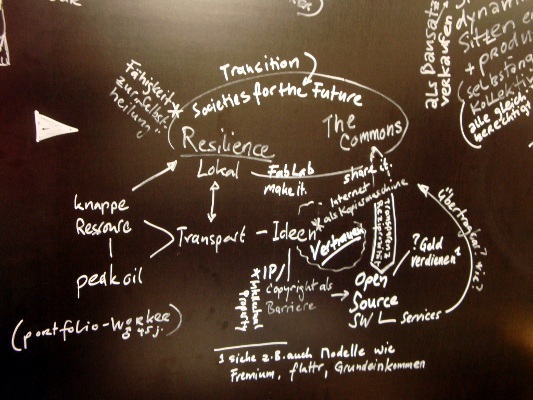 Transition
Societies for the Future
Fähigkeit
zur Selbst-
heilung
Resilience
The
Commons
Lokal
FabLab
make it.
share it.
Internet
als Kopiermaschine
knappe
Ressource
peak oil
Transport - Ideen*
Vertrauen
Transparenz
(portfolio-worker
45 j.)
IP/
Copyright als
Barriere
* Intellectual
Property
Open
Source
SW
Services
? Geld
verdienen¹
Übertragbar? wie?
1 siehe z.B. auch Modelle wie
Fremium, flattr, Grundeinkommen
als Bausatz
verkaufen
dynami
Sitzen e
+ produ
selbstän
kollekti
alle gleich-
berechtigt